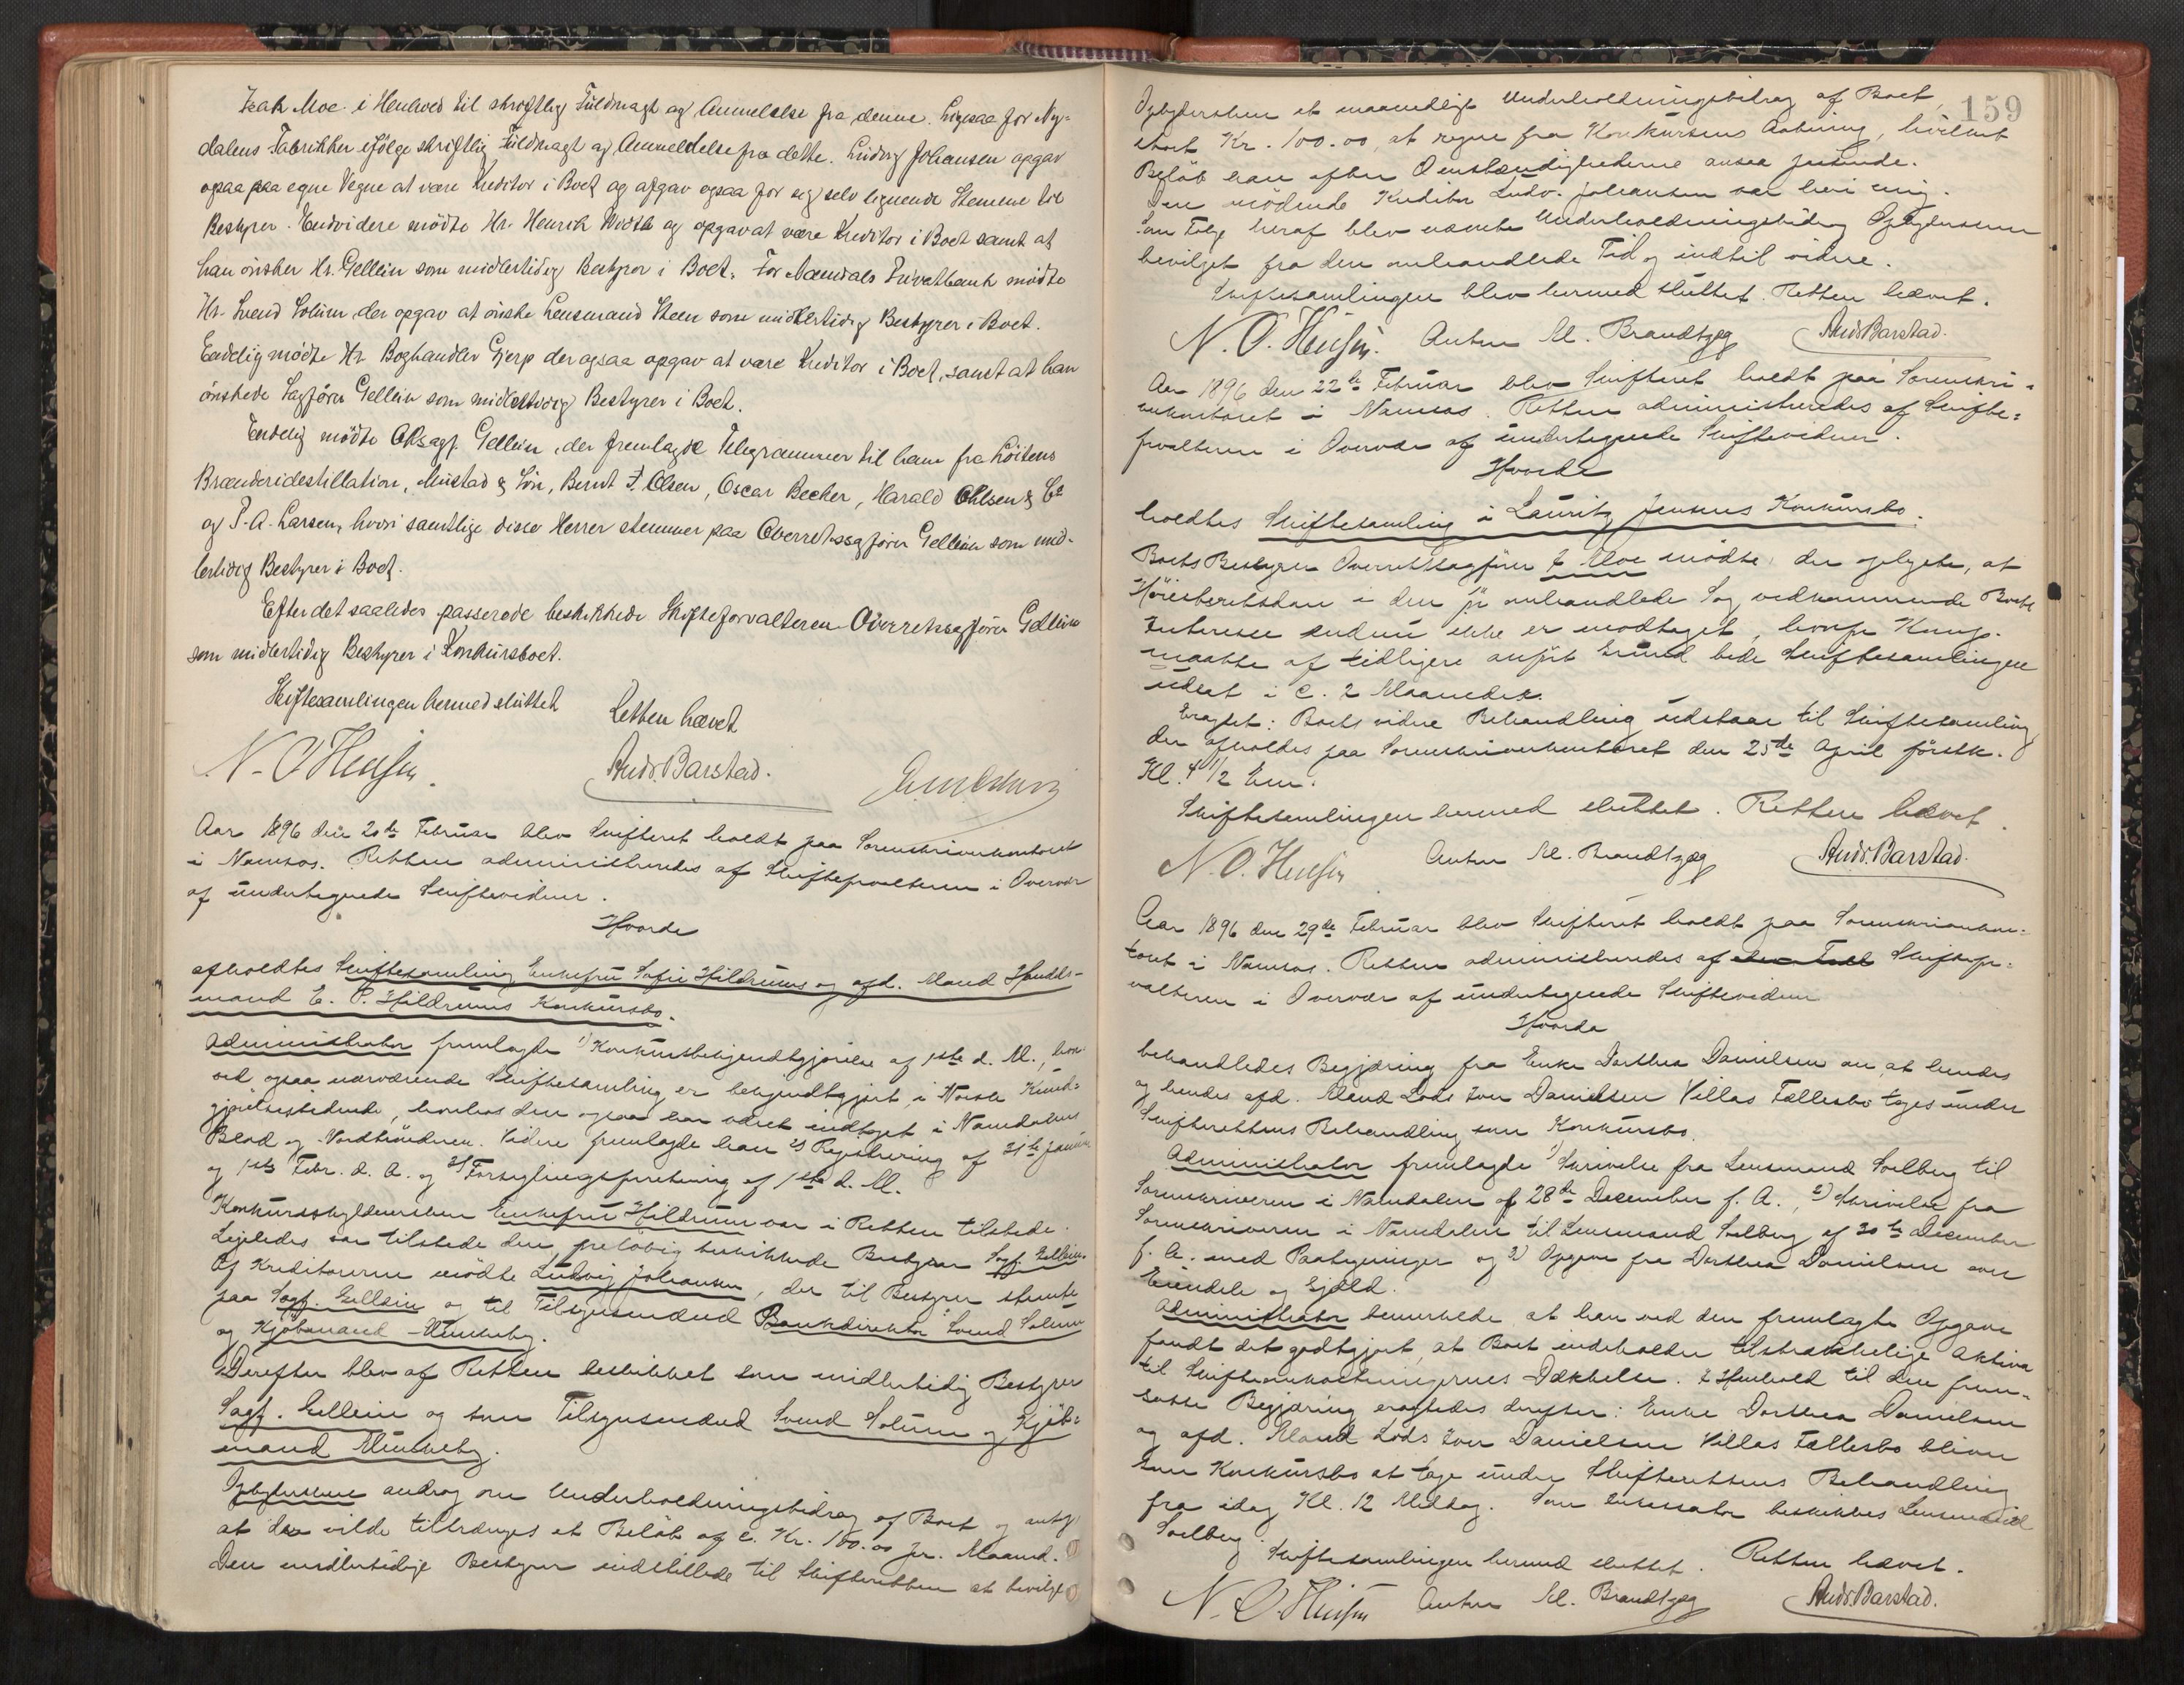 Isak Moe i Henhold til skriftlig Fuldmagt og Anmeldelse fra denne. Ligesaa for Ny-
dalens Fabrikker ifølge skriftlig Fuldmagt og Anmeldelse fra dette. Ludvig Johansen opgav
ogsaa paa egne Vegne at være Kreditor i Boet og afgav ogsaa for sig selv lignende Stemme til
Bestyrer. Endvidere mødte Hr. Henrik og opgav at være Kreditor i Boet samt at
han ønsker Hr. Gellein som midlertidig Bestyrer i Boet. For Namdals Privatbank mødte
Hr. Svend Solum der opgav at ønske Lensmand Steen som midlertidig Bestyrer i Boet.
Endelig mødte Hr. Boghandler Gjerp der ogsaa opgav at være Kreditor i Boet, samt at han
ønskede Sagfører Gellein som midlertidig Bestyrer i Boet.
Endelig mødte ORsagf. Gellein, der fremlagde Telegrammer til ham fra Löitens
Brænderidestillation, Mustad & Søn, Bernt J. Olsen, Oscar Becker, Harald Ohlsen & Co
og P. A. Larsen, hvori samtlige disse Herrer stemmer paa Overretssagfører Gellein som mid-
lertidig Bestyrer i Boet.
Efter det saaledes passerede beskikkede Skifteforvalteren Overretssagfører Gellein
som midlertidig Bestyrer i Konkursboet.
Skiftesamlingen hermed sluttet Retten hævet
N. O. Hensen. Andr. Barstad.
Aar 1896 den 20de Februar blev Skifteret holdt paa Sorenskriverkontoret
i Namsos. Retten administreredes af Skifteforvalteren i Overvær
af undertegnede Skiftevidner.
Hvorda
afholdtes Skiftesamling Enkefru Sofie Hildrums og afd. Mand Handels-
mand E. P. Hildrums Konkursbo.
Administrator fremlagde 1) Konkursbekjendtgjørelse af 1ste d. M., hvor-
ved ogsaa nærværende Skiftesamling er bekjendtgjort i Norsk Kund-
gjørelsestidende, hvorhos den ogsaa har været indtaget i Namdalens
Blad og Nordtrönderen. Videre fremlagde han 2) Registrering af 31te Januar
og 1ste Febr. d. A. og 3) Forseglingsforretning af 1ste d. M.
Konkursskyldnersken Enkefru Hildrum var i Retten tilstede.
Ligeledes var tilstede den foreløbig beskikkede Bestyrer Sagf. Gellein.
Af Kreditorerne mødte Ludvig Johansen, der til Bestyrer stemte
paa Sagf. Gellein og til Tilsynsmænd Bankdirektør Svend Solum
og Kjøbmand Munkeby.
Derefter blev af Retten beskikket som midlertidig Bestyrer
Sagf. Gellein og som Tilsynsmænd Svend Solum og Kjøb-
mand Munkeby.
Opbydersken androg om Underholdningsbidrag af Boet og antog
at der vilde tiltrænges et Beløb af c. Kr. 100.00 pr. Maaned.
Den midlertidige Bestyrer indstillede til Skifteretten at bevilge
159
Opbydersken et maanedligt Underholdningsbidrag af Boet,
stort Kr. 100.00, at regne fra Konkursens Aabning, hvilket
Beløb han efter Omstændighederne ansaa passende.
Den mødende Kreditor Ludv. Johansen var heri enig.
Som Følge heraf blev nævnte Underholdningsbidrag Opbydersken
bevilget fra den omhandlede Tid og indtil videre.
Skiftesamlingen blev hermed sluttet. Retten hævet.
N. O. Hensen. Anton M. Brandtzæg Andr. Barstad.
Aar 1896 den 22de Februar blev Skifteret holdt paa Sorenskri-
verkontoret i Namsos. Retten administreredes af Skifte-
forvalteren i Overvær af undertegnede Skiftevidner.
Hvorda
holdtes Skiftesamling i Lauritz Jensens Konkursbo.
Boets Bestyrer Overretssagfører I. Moe mødte, der oplyste, at
Høiesteretsdom i den omhandlede Sag vedkommende Boets
Interesse endnu ikke er modtaget, hvorfor Komp.
maatte af tidligere anført Grund bede Skiftesamlingen
udsat i c. 2 Maaneder.
Eragtet: Boets videre Behandling udstaar til Skiftesamling
der afholdes paa Sorenskriverkontoret den 25de April førstk.
Kl. 4 1/2 Em.
Skiftesamlingen hermed sluttet. Retten hævet.
N. O. Hensen Anton M. Brandtzæg Andr. Barstad.
Aar 1896 den 29de Februar blev Skifteret holdt paa Sorenskriverkon-
toret i Namsos. Retten administreredes af Skiftefor-
valteren i Overvær af undertegnede Skiftevidner
Hvorda
behandledes Begjæring fra Enke Dorthea Danielsen om, at hendes
og hendes afd. Mand Lods Iver Danielsen Villas Fællesbo tages under
Skifterettens Behandling som Konkursbo.
Administrator fremlagde 1) Skrivelse fra Lensmand Solberg til
Sorenskriveren i Namdalen af 28de December f. A., 2) Skrivelse fra
Sorenskriveren i Namdalen til Lensmand Solberg af 30te December
f. A. med Paategninger og 3) Opgave fra Dorthea Danielsen over
Eiendele og Gjæld.
Administrator bemærkede, at han ved den fremlagte Opgave
fandt det godtgjort, at Boet indeholder tilstrækkelige Aktiva
til Skifteomkostningernes Dækkelse. I Henhold til den frem-
satte Begjæring eragtedes derfor: Enke Dorthea Danielsen
og afd. Mand Lods Iver Danielsen Villas Fællesbo bliver
som Konkursbo at tage under Skifterettens Behandling
fra idag Kl. 12 Middag. Som beskikkes Lensmand
Solberg.
Skiftesamlingen hermed sluttet. Retten hævet.
N. O. Hensen Anton M. Brandtzæg Andr. Barstad.